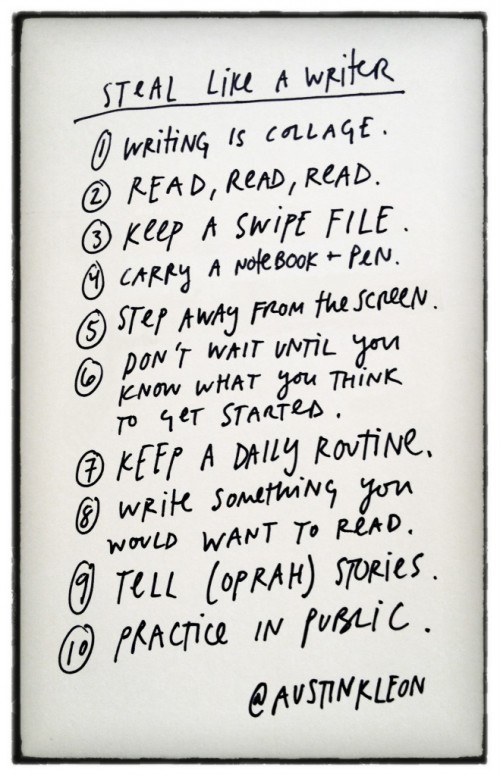 STEAL LIKE A WRITER
① WRITING IS COLLAGE.
② READ, READ, READ.
③ KEEP A SWIPE FILE.
④ CARRY A NOTEBOOK + PEN.
⑤ STEP AWAY FROM the SCREEN.
⑥ DON'T WAIT UNTIL you
KNOW WHAT you THINK
TO GET STARTED.
⑦ KEEP A DAILY ROUTINE.
⑧ WRITE SOMETHING you
WOULD WANT TO READ.
⑨ TELL (OPRAH) STORIES.
⑩ PRACTICE IN PUBLIC.
@AUSTINKLEON